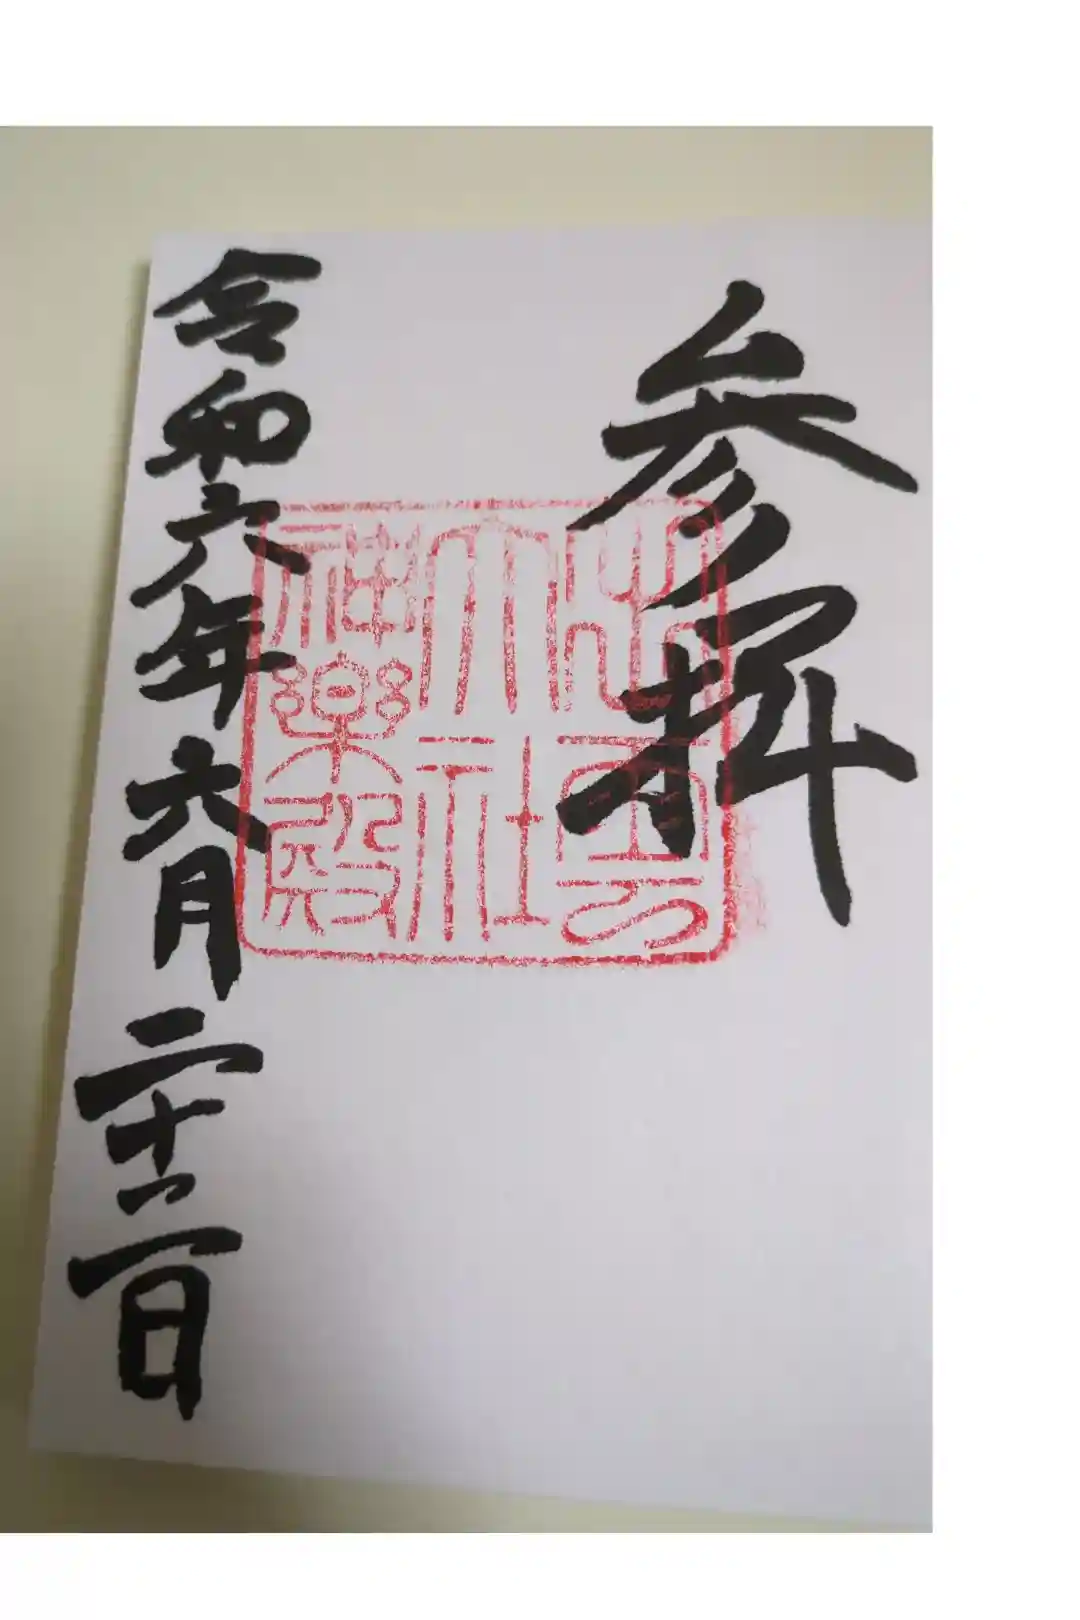 参拝
出雲
大社
神樂殿
令和六年六月二十二日